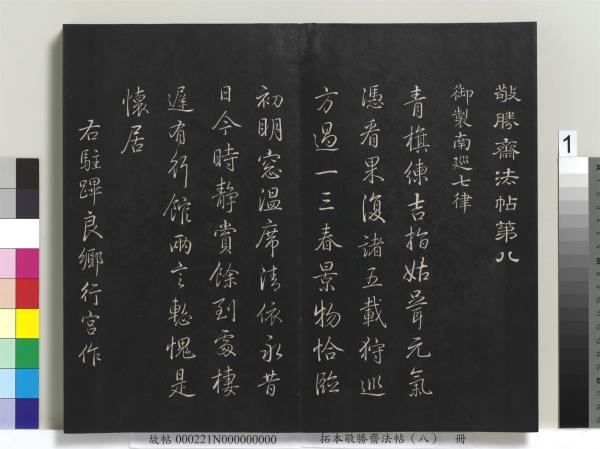 敬勝齋法帖第八
御製南巡七律
青旗練吉指姑胥元氣
憑看果復諸五載狩巡
方過一三春景物恰臨
初明窓温席清依永昔
日今時静賞餘到處棲
遲有行館兩言慙愧是
懷居
右駐蹕良鄉行宮作
1
故帖 000221N000000000
拓本敬勝齋法帖(八) 冊